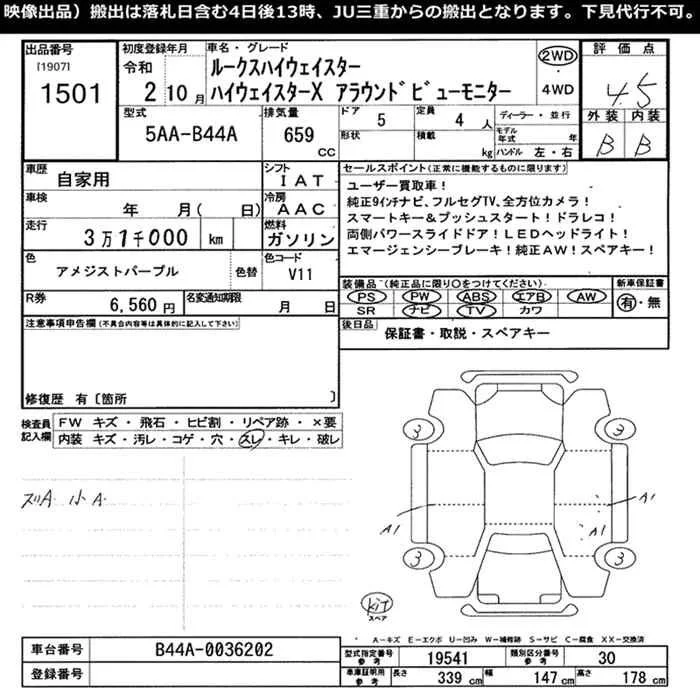 映像出品）搬出は落札日含む4日後13時、JU三重からの搬出となります。下見代行不可。
出品番号
[1907]
1501
初度登録年月
令和
2 10月
車名・グレード
ルークスハイウェイスター
ハイウェイスターX アラウンドビューモニター
2WD
4WD
評価点
4.5
外装 内装
B B
型式
5AA-B44A
排気量
659
cc
ドア
5
定員
4 人
形状
積載
kg
ディーラー・並行
モデル年式 年
ハンドル 左・右
車歴
自家用
シフト
IAT
車検
年 月( 日)
冷房
AAC
走行
3万1千000 km
燃料
ガソリン
色
アメジストパープル
色替
色コード
V11
R券
6,560 円
名変通知期限
月 日
セールスポイント(正常に機能するものに限ります)
ユーザー買取車！
純正9インチナビ、フルセグTV、全方位カメラ！
スマートキー＆プッシュスタート！ドラレコ！
両側パワースライドドア！LEDヘッドライト！
エマージェンシーブレーキ！純正AW！スペアキー！
装備品（純正品に限り○をつけてください）
PS PW ABS エアB AW
SR ナビ TV カワ
新車保証書
有・無
後日品
保証書・取説・スペアキー
注意事項申告欄(不具合内容等は具体的に記入して下さい)
修復歴 有〔箇所 〕
検査員記入欄
FW キズ・飛石・ヒビ割・リペア跡・×要
内装 キズ・汚レ・コゲ・穴・スレ・キレ・破レ
スリA 小A
3 3
A1
A1 A1
3 3
kit
スペア
A－キズ E－エクボ U－凹み W－補修跡 S－サビ C－腐食 XX－交換済
車台番号
B44A-0036202
登録番号
型式指定番号参考
19541
類別区分番号参考
30
車庫証明用参考
長さ 339 cm
幅 147 cm
高さ 178 cm